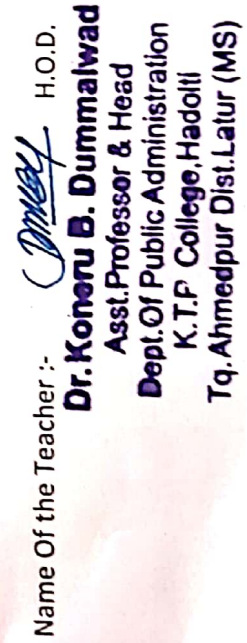 Name Of the Teacher :- H.O.D.
Dr. Koneru B. Dummalwad
Asst.Professor & Head
Dept.Of Public Administration
K.T.P College,Hadolti
Tq. Ahmedpur Dist.Latur (MS)